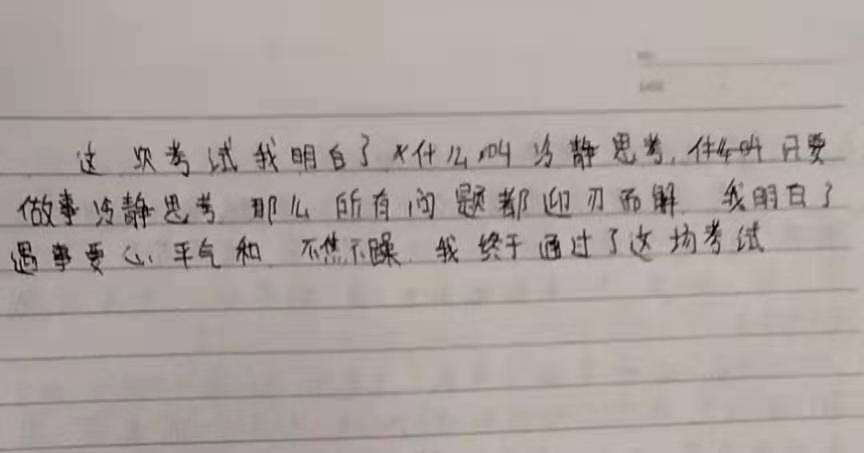 这次考试我明白了什么叫冷静思考,什么叫只要
做事冷静思考 那么所有问题都迎刃而解 我明白了
遇事要心平气和 不焦不躁 我终于通过了这场考试